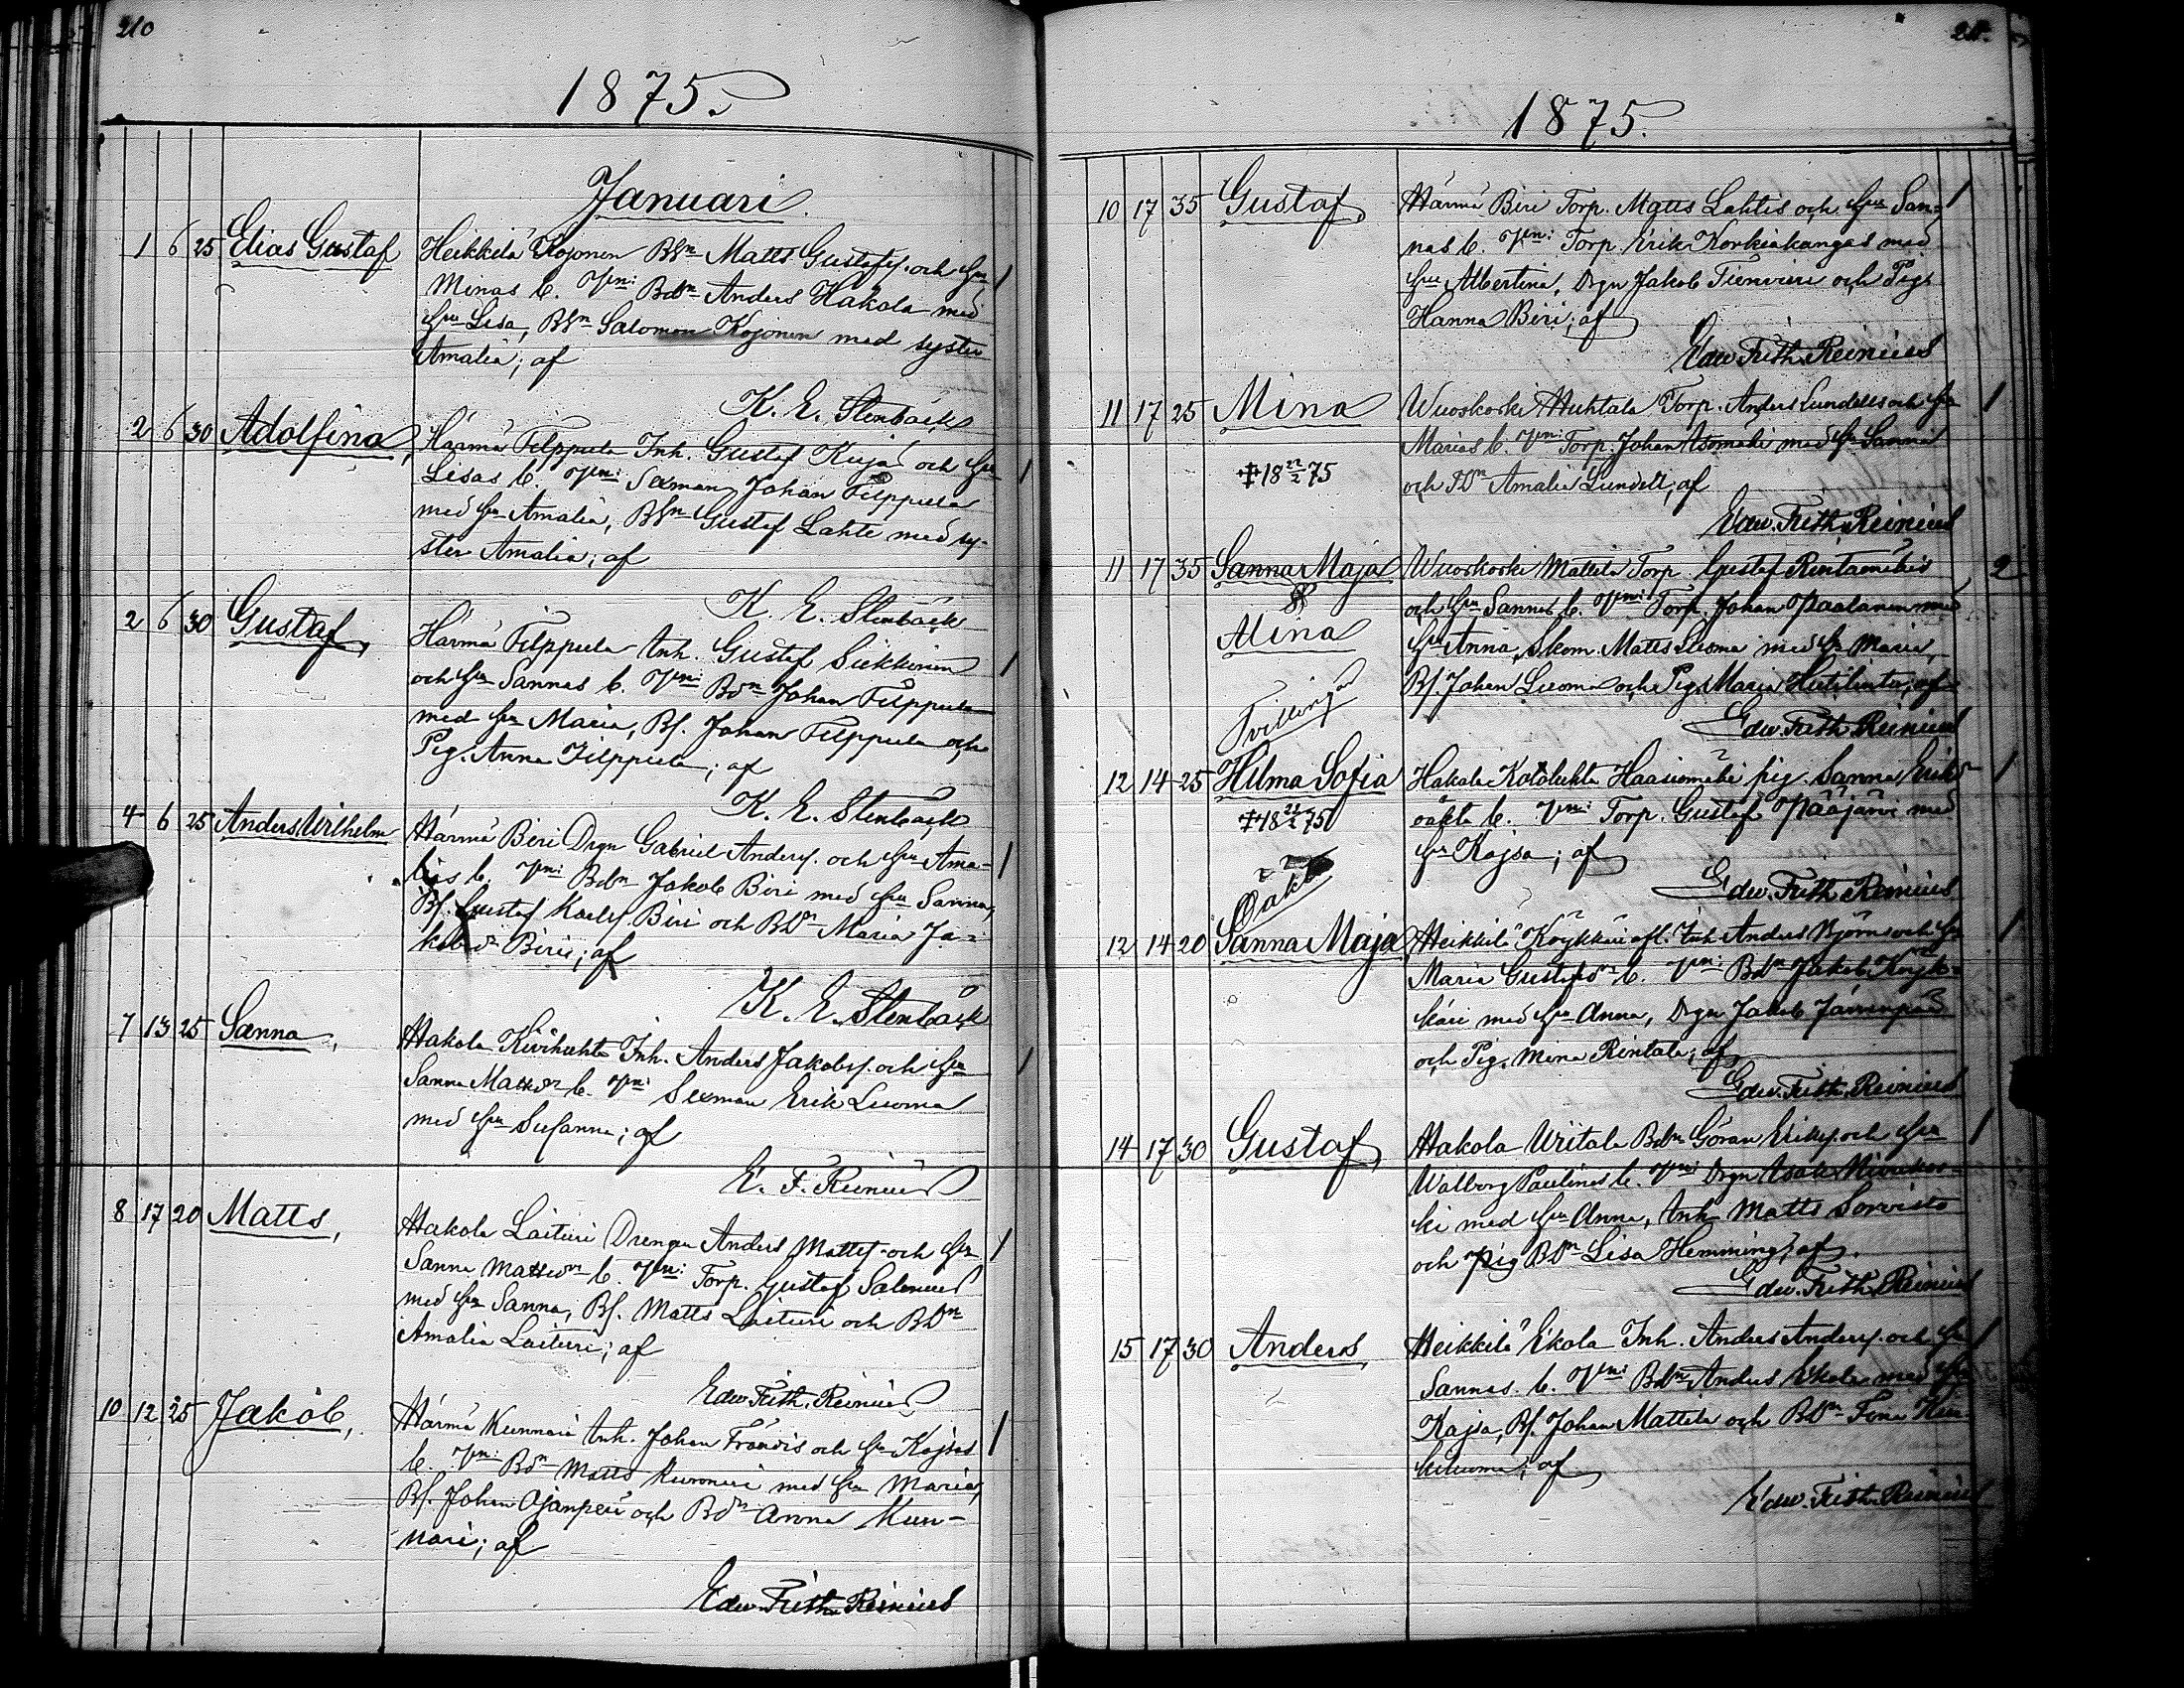 210
1875.
Januari
1 6 25 Elias Gustaf Heikkilä Kojonen Bsn Matts Gustafs. och hu
Minas b. Vn: Bdn Anders Hakola med
hu Lisa, Bsn Salomon Kojonen med syster
Amalia; af
K. E. Stenbäck
2 6 30 Adolfina, Häärmä Filppula Inh. Gustaf Kujas och hu
Lisas b. Vn: Sexman Johan Filppula
med hu Amalia, Bsn Gustaf Lahte med sy-
ster Amalia; af
K. E. Stenbäck
2 6 30 Gustaf, Härmä Filppula Inh. Gustaf Siekkinen
och hu Sannas b. Vn: Bdn Johan Filppula
med hu Maria, Bs. Johan Filppula och
Pig. Anna Filppula; af
K. E. Stenbäck
4 6 25 Anders Wilhelm Härmä Biri Drgn Gabriel Anders. och hu Ama-
lias b. Vn: Bdn Jakob Biri med hu Sanna,
Bs. Gustaf Karls. Biri och BDn Maria Ja-
kobsdr Biri; af
K. E. Stenbäck
7 13 25 Sanna, Hakola Kivihuhta Inh. Anders Jakobs. och hu
Sanna Mattsdr b. Vn: Sexman Erik Luoma
med hu Susanna; af
E. F. Reinius
8 17 20 Matts, Hakola Laituri Drengen Anders Matts. och hu
Sanna Mattsdr b. Vn: Torp. Gustaf Salenius
med hu Sanna, Bs. Matts Laituri och BDn
Amalia Laituri; af
Edw. Frith. Reinius
10 12 25 Jakob, Härmä Kunnari Inh. Johan och hu Kajsas
b. Vn: Bdn Matts Kunnari med hu Maria,
Bs. Johan Ojanperä och Bdn Anna Kun-
nari; af
Edw. Frith. Reinius
1875.
10 17 35 Gustaf, Härmä Biri Torp. Matts Lahtis och hu San-
nas b. Vn: Torp. Erik Korkiakangas med
hu Albertina, Drgn Jakob Tienvieri och Pig.
Hanna Biri; af
Edw. Frith. Reinius
11 17 25 Mina Wuoskoski Huhtala Torp. Anders Lundells och hu
Marias b. Vn: Torp. Johan Asomäki med hu Sanna
‡ 18 22/2 75 och TDn Amalia Lundell; af
Edw. Frith. Reinius
11 17 35 Sanna Maja Wuoskoski Mattila Torp. Gustaf Rintamäkis 2
& och hu Sannas b. Vn: Torp. Johan Paalanen med
Mina hu Anna, Skom. Matts Luoma med hu Maria,
Bs. Johan Luoma och Pig. Maria; af
Tvillingar
Edw. Frith. Reinius
12 14 25 Hilma Sofia Hakala Kotoluhta Haasiomäki pig. Sanna Eriksdr
‡ 18 75 oäkta b. Vn: Torp. Gustaf Pääjärvi med
hu Kajsa; af
Oäkt
Edw. Frith. Reinius
12 14 20 Sanna Maja, Heikkilä Köykkäri afl. Inh. Anders Björns och hu
Maria Gustafsdr b. Vn: Bdn Jakob Köyk-
käri med hu Anna, Drgn Jakob Järvenpää
och Pig. Mina Rintala; af
Edw. Frith. Reinius
14 17 30 Gustaf, Hakola Uitala Bdn Göran Eriks. och hu
Walborg Paulines b. Vn: Drgn Isak
ki med hu Anna, Inh. Matts Sorvisto
och pig BDn Lisa Hemming; af
Edw. Frith. Reinius
15 17 30 Anders, Heikkilä Ekola Inh. Anders Anders. och hu
Sannas b. Vn: Bdn Anders Ekola med hu
Kajsa, Bs. Johan Mattila och BDn Fina
; af
Edw. Frith. Reinius